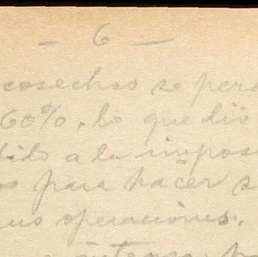 - 6 -
cosechas se per
60%, lo que dió
a la impos
para hacer s
us operaciones.
intensa